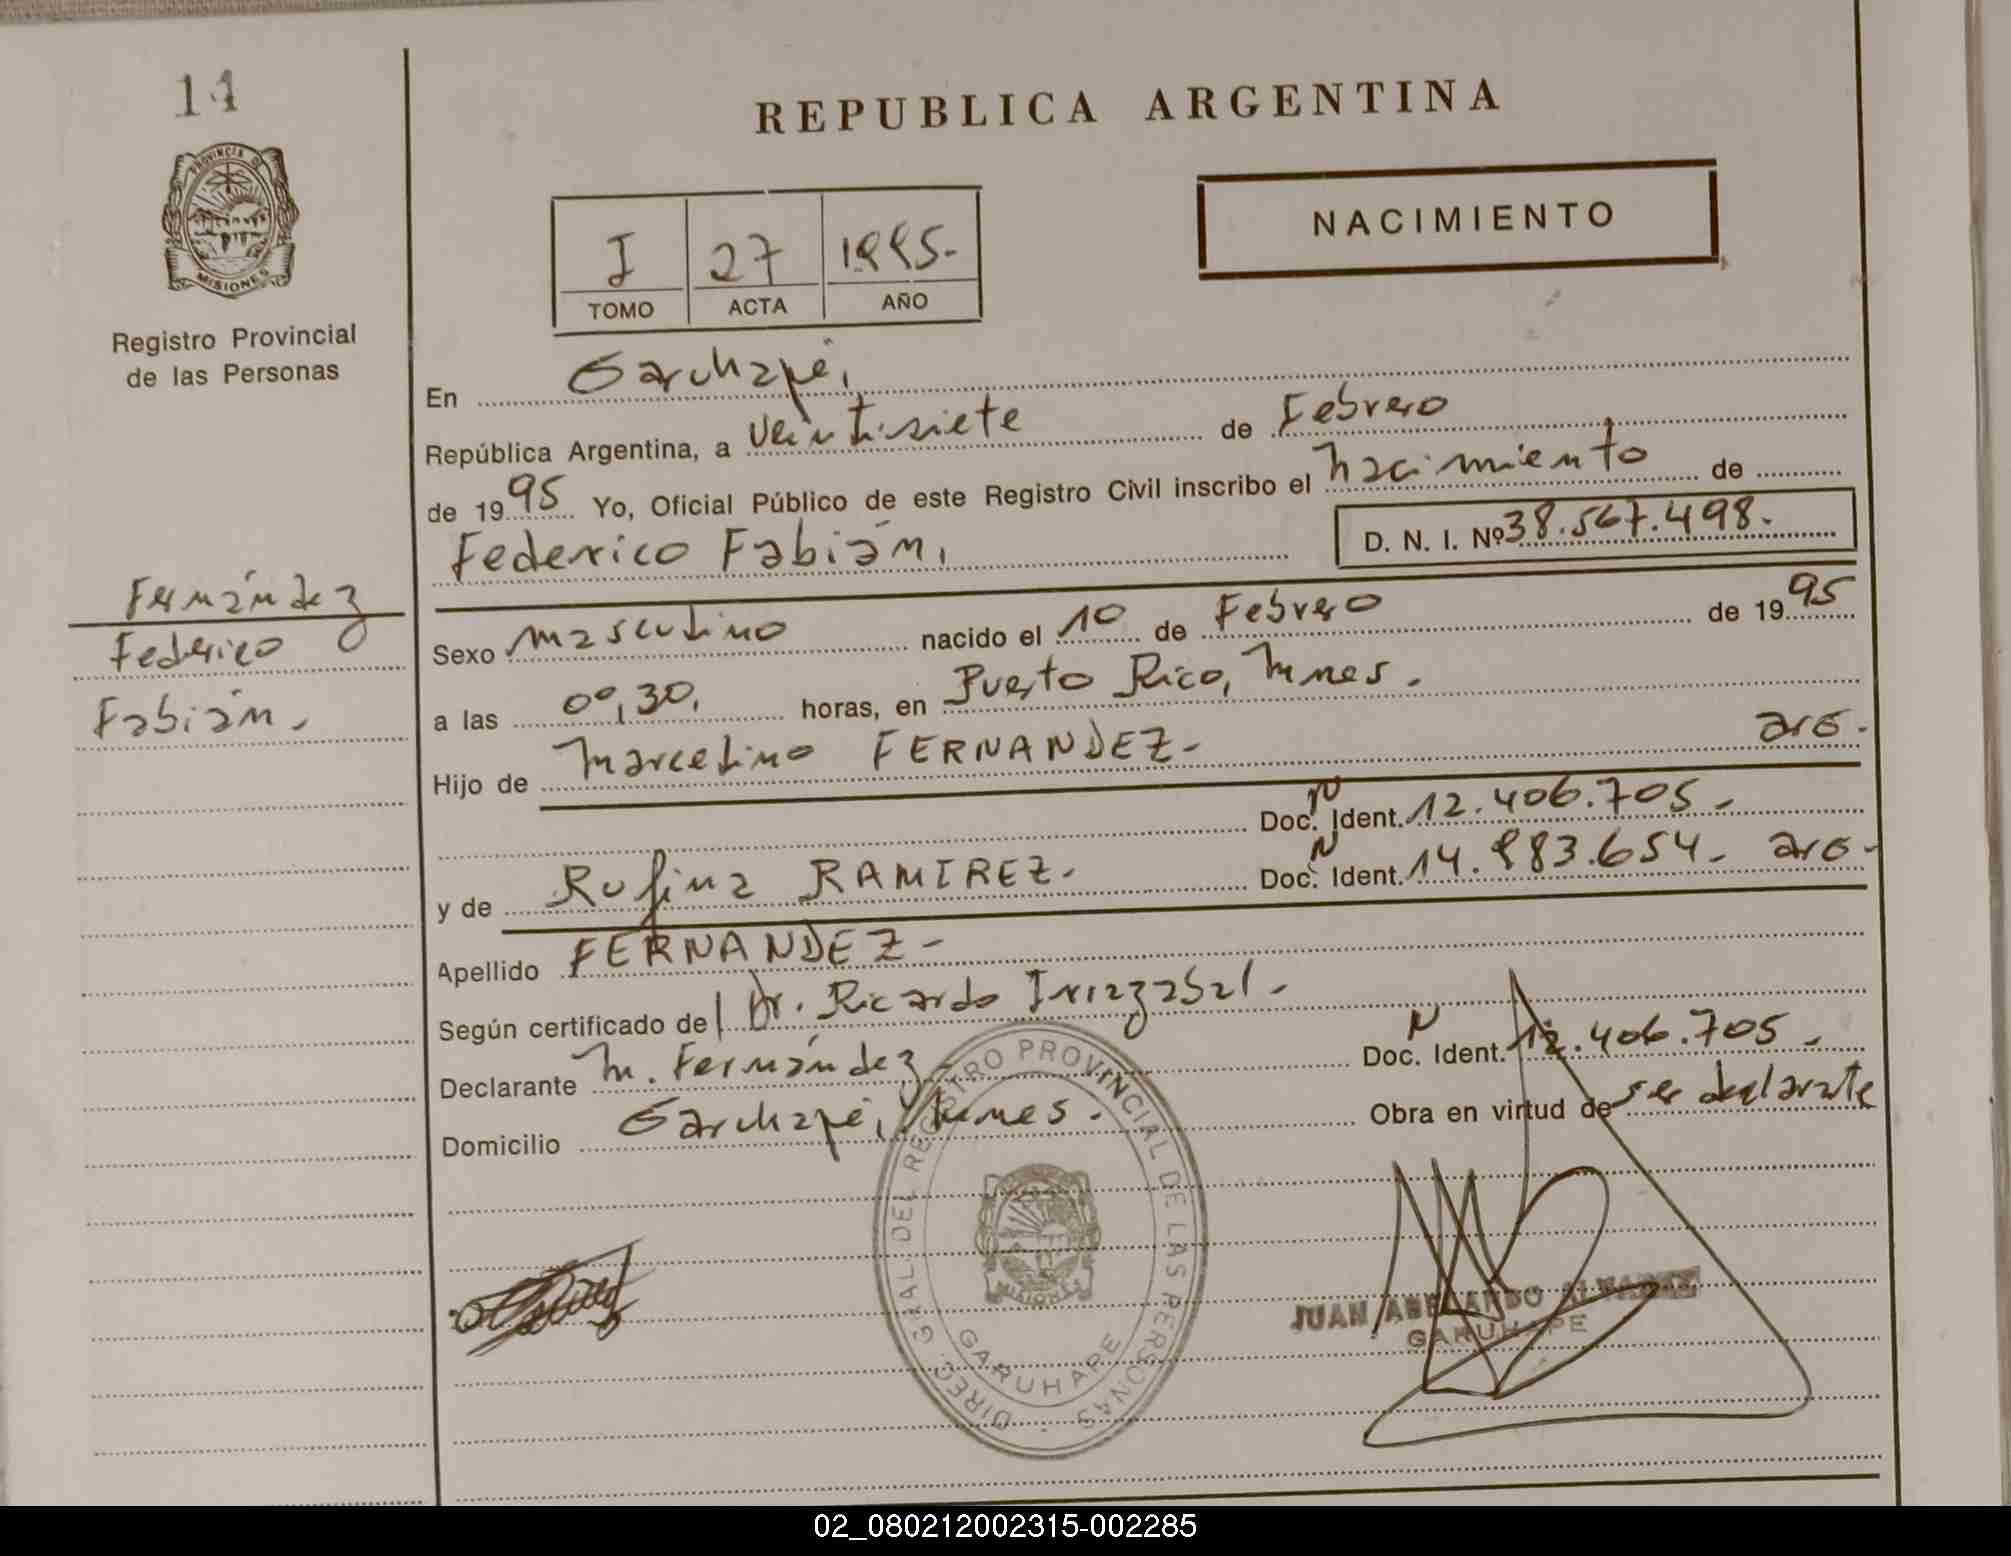 14
PROVINCIA DE
MISIONES
Registro Provincial
de las Personas
Fernández
Federico
Fabián.
REPUBLICA ARGENTINA
NACIMIENTO
I 27 1995.
TOMO ACTA AÑO
En Garuhapé,
República Argentina, a Veintisiete de Febrero
de 1995 Yo, Oficial Público de este Registro Civil inscribo el nacimiento de
Federico Fabián, D. N. I. Nº 38.567.498.
Sexo masculino nacido el 10 de Febrero de 1995
a las 00,30, horas, en Puerto Rico, Mnes.
Hijo de Marcelino FERNANDEZ- arg.
Doc. N Ident. 12.406.705-
y de Rufina RAMIREZ. Doc. N Ident. 14.983.654- arg-
Apellido FERNANDEZ-
Según certificado del Dr. Ricardo Irrazabal-
Declarante M. Fernández Doc. N Ident. 12.406.705-
Domicilio Garuhapé, Mnes. Obra en virtud de ser declarante
DIREC. GRAL DEL REGISTRO PROVINCIAL DE LAS PERSONAS
MISIONES
GARUHAPE
JUAN ABELARDO
GARUHAPE
02_080212002315-002285